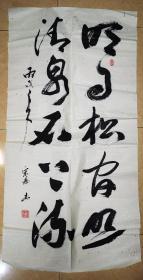 明月松间照
清泉石上流
丙戌